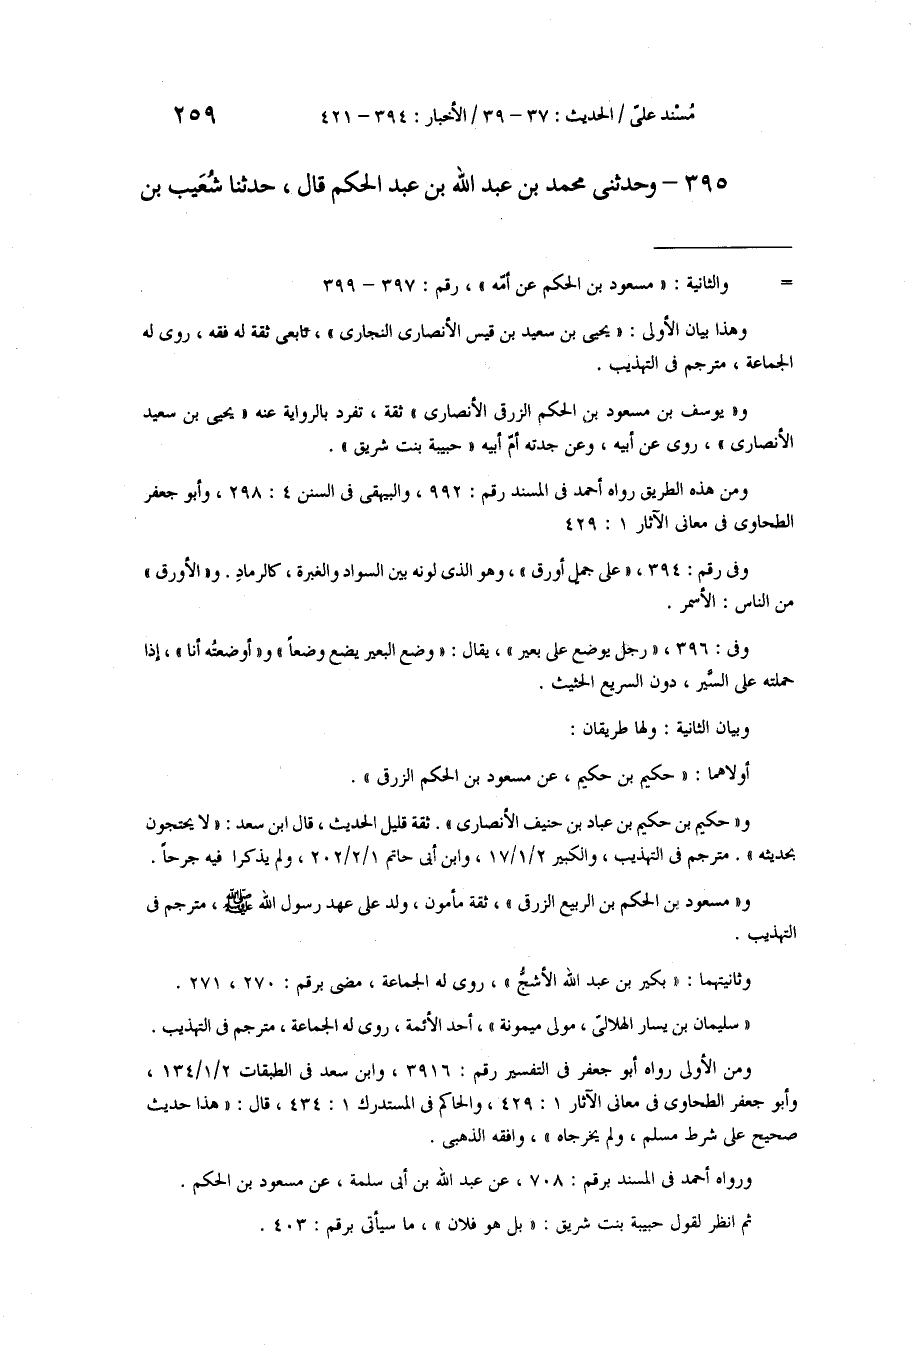 مُسْند علىّ / الحديث : ٣٧ – ٣٩ / الأخبار : ٣٩٤ – ٤٢١ ٢٥٩
٣٩٥ – وحدثنى محمد بن عبد الله بن عبد الحكم قال ، حدثنا شُعَيب بن
= والثانية : « مسعود بن الحكم عن أمّه » ، رقم : ٣٩٧ – ٣٩٩
وهذا بيان الأولى : « يحيى بن سعيد بن قيس الأنصارى النجارى » ، تابعى ثقة له فقه ، روى له
الجماعة ، مترجم فى التهذيب .
و« يوسف بن مسعود بن الحكم الزرق الأنصارى » ثقة ، تفرد بالرواية عنه « يحيى بن سعيد
الأنصارى » ، روى عن أبيه ، وعن جدته أمّ أبيه « حبيبة بنت شريق » .
ومن هذه الطريق رواه أحمد فى المسند رقم : ٩٩٢ ، والبيهقى فى السنن ٤ : ٢٩٨ ، وأبو جعفر
الطحاوى فى معانى الآثار ١ : ٤٢٩
وفى رقم : ٣٩٤ ، « على جملٍ أورق » ، وهو الذى لونه بين السواد والغبرة ، كالرمادِ . و« الأورق »
من الناس : الأسمر .
وفى : ٣٩٦ ، « رجل يوضع على بعير » ، يقال : « وضع البعير يضع وضعاً » و« أوضعتُه أنا » ، إذا
حملته على السَّير ، دون السريع الحثيث .
وبيان الثانية : ولها طريقان :
أولاهما : « حكيم بن حكيم ، عن مسعود بن الحكم الزرق » .
و« حكيم بن حكيم بن عباد بن حنيف الأنصارى » . ثقة قليل الحديث ، قال ابن سعد : « لا يحتجون
بحديثه » . مترجم فى التهذيب ، والكبير ١٧/١/٢ ، وابن أبى حاتم ٢٠٢/٢/١ ، ولم يذكرا فيه جرحاً .
و« مسعود بن الحكم بن الربيع الزرق » ، ثقة مأمون ، ولد على عهد رسول الله ﷺ ، مترجم فى
التهذيب .
وثانيتهما : « بكير بن عبد الله الأشجُّ » ، روى له الجماعة ، مضى برقم : ٢٧٠ ، ٢٧١ .
« سليمان بن يسار الهلالىّ ، مولى ميمونة » ، أحد الأئمة ، روى له الجماعة ، مترجم فى التهذيب .
ومن الأولى رواه أبو جعفر فى التفسير رقم : ٣٩١٦ ، وابن سعد فى الطبقات ١٣٤/١/٢ ،
وأبو جعفر الطحاوى فى معانى الآثار ١ : ٤٢٩ ، والحاكم فى المستدرك ١ : ٤٣٤ ، قال : « هذا حديث
صحيح على شرط مسلم ، ولم يخرجاه » ، وافقه الذهبى .
ورواه أحمد فى المسند برقم : ٧٠٨ ، عن عبد الله بن أبى سلمة ، عن مسعود بن الحكم .
ثم انظر لقول حبيبة بنت شريق : « بل هو فلان » ، ما سيأتى برقم : ٤٠٣ .